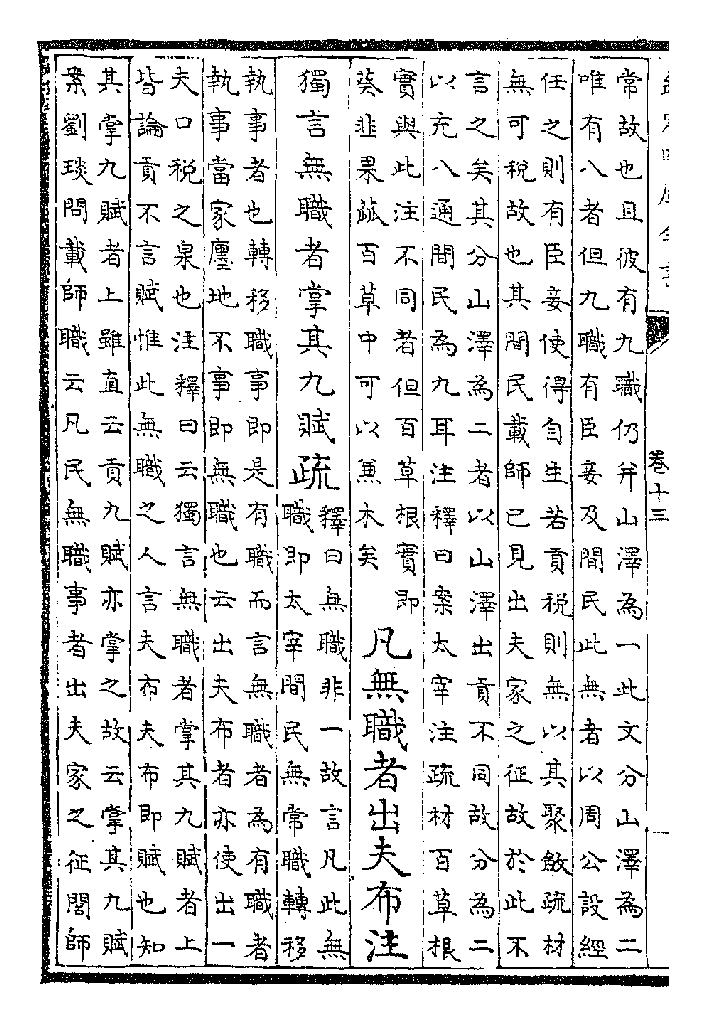 欽定四庫全書
卷十三
常故也且彼有九職仍并山澤為一此文分山澤為二
唯有八者但九職有臣妾及閒民此無者以周公設經
任之則有臣妾使得自生若貢稅則無以其聚斂疏材
無可稅故也其閒民載師已見出夫家之征故於此不
言之矣其分山澤為二者以山澤出貢不同故分為二
以充八通閒民為九耳注釋曰案太宰注疏材百草根
實與此注不同者但百草根實即
葵韭果蓏百草中可以兼木矣
凡無職者出夫布注
獨言無職者掌其九賦疏
釋曰無職非一故言凡此無
職即太宰閒民無常職轉移
執事者也轉移職事即是有職而言無職者為有職者
執事當家廛地不事即無職也云出夫布者亦使出一
夫口稅之泉也注釋曰云獨言無職者掌其九賦者上
皆論貢不言賦惟此無職之人言夫布夫布即賦也知
其掌九賦者上雖直云貢九賦亦掌之故云掌其九賦
案劉琰問載師職云凡民無職事者出夫家之征閭師